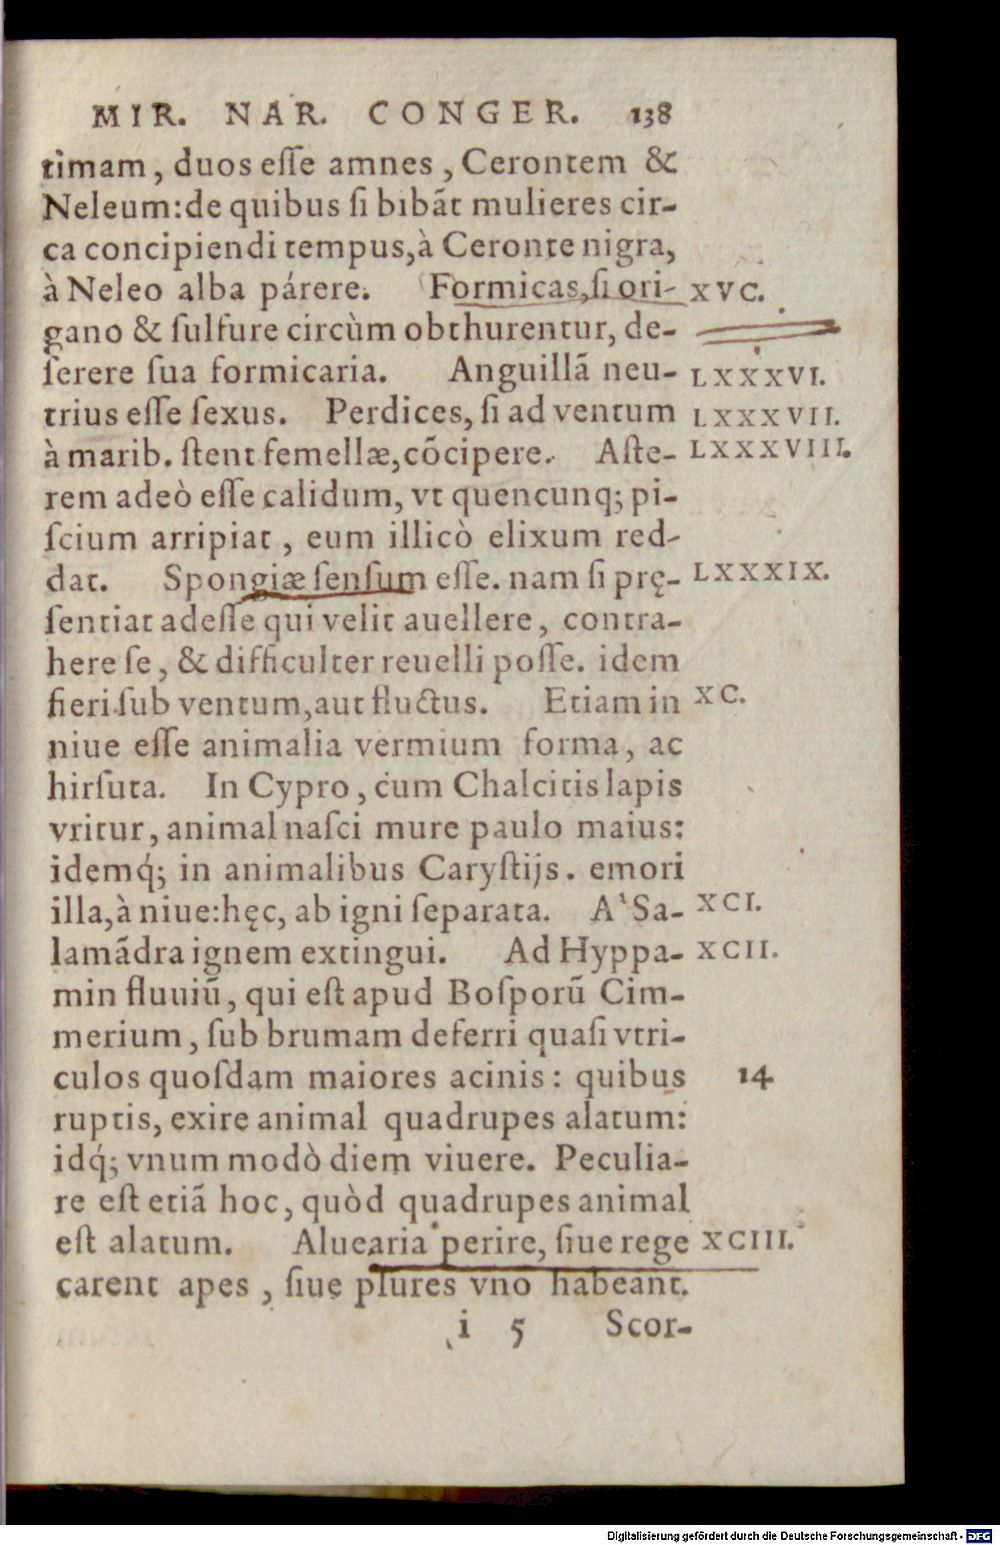 MIR. NAR. CONGER. 138
timam, duos eſſe amnes, Cerontem &
Neleum: de quibus ſi bibãt mulieres cir-
ca concipiendi tempus, à Ceronte nigra,
à Neleo alba párere. Formicas, ſi ori- XVC.
gano & ſulfure circùm obthurentur, de-
ſerere ſua formicaria. Anguillã neu- LXXXVI.
trius eſſe ſexus. Perdices, ſi ad ventum LXXXVII.
à marib. ſtent femellæ, cõcipere. Aſte- LXXXVIII.
rem adeò eſſe calidum, vt quencunq; pi-
ſcium arripiat, eum illicò elixum red-
dat. Spongiæ ſenſum eſſe. nam ſi prę- LXXXIX.
ſentiat adeſſe qui velit auellere, contra-
here ſe, & difficulter reuelli poſſe. idem
fieri ſub ventum, aut fluctus. Etiam in XC.
niue eſſe animalia vermium forma, ac
hirſuta. In Cypro, cum Chalcitis lapis
vritur, animal naſci mure paulo maius:
idemq́; in animalibus Caryſtijs. emori
illa, à niue: hęc, ab igni ſeparata. A' Sa- XCI.
lamãdra ignem extingui. Ad Hyppa- XCII.
min fluuiũ, qui eſt apud Boſporũ Cim-
merium, ſub brumam deferri quaſi vtri-
culos quoſdam maiores acinis: quibus 14
ruptis, exire animal quadrupes alatum:
idq́; vnum modò diem viuere. Peculia-
re eſt etiã hoc, quòd quadrupes animal
eſt alatum. Aluearia perire, ſiue rege XCIII.
carent apes, ſiue plures vno habeant.
i 5 Scor-
Digitalisierung gefördert durch die Deutsche Forschungsgemeinschaft - DFG